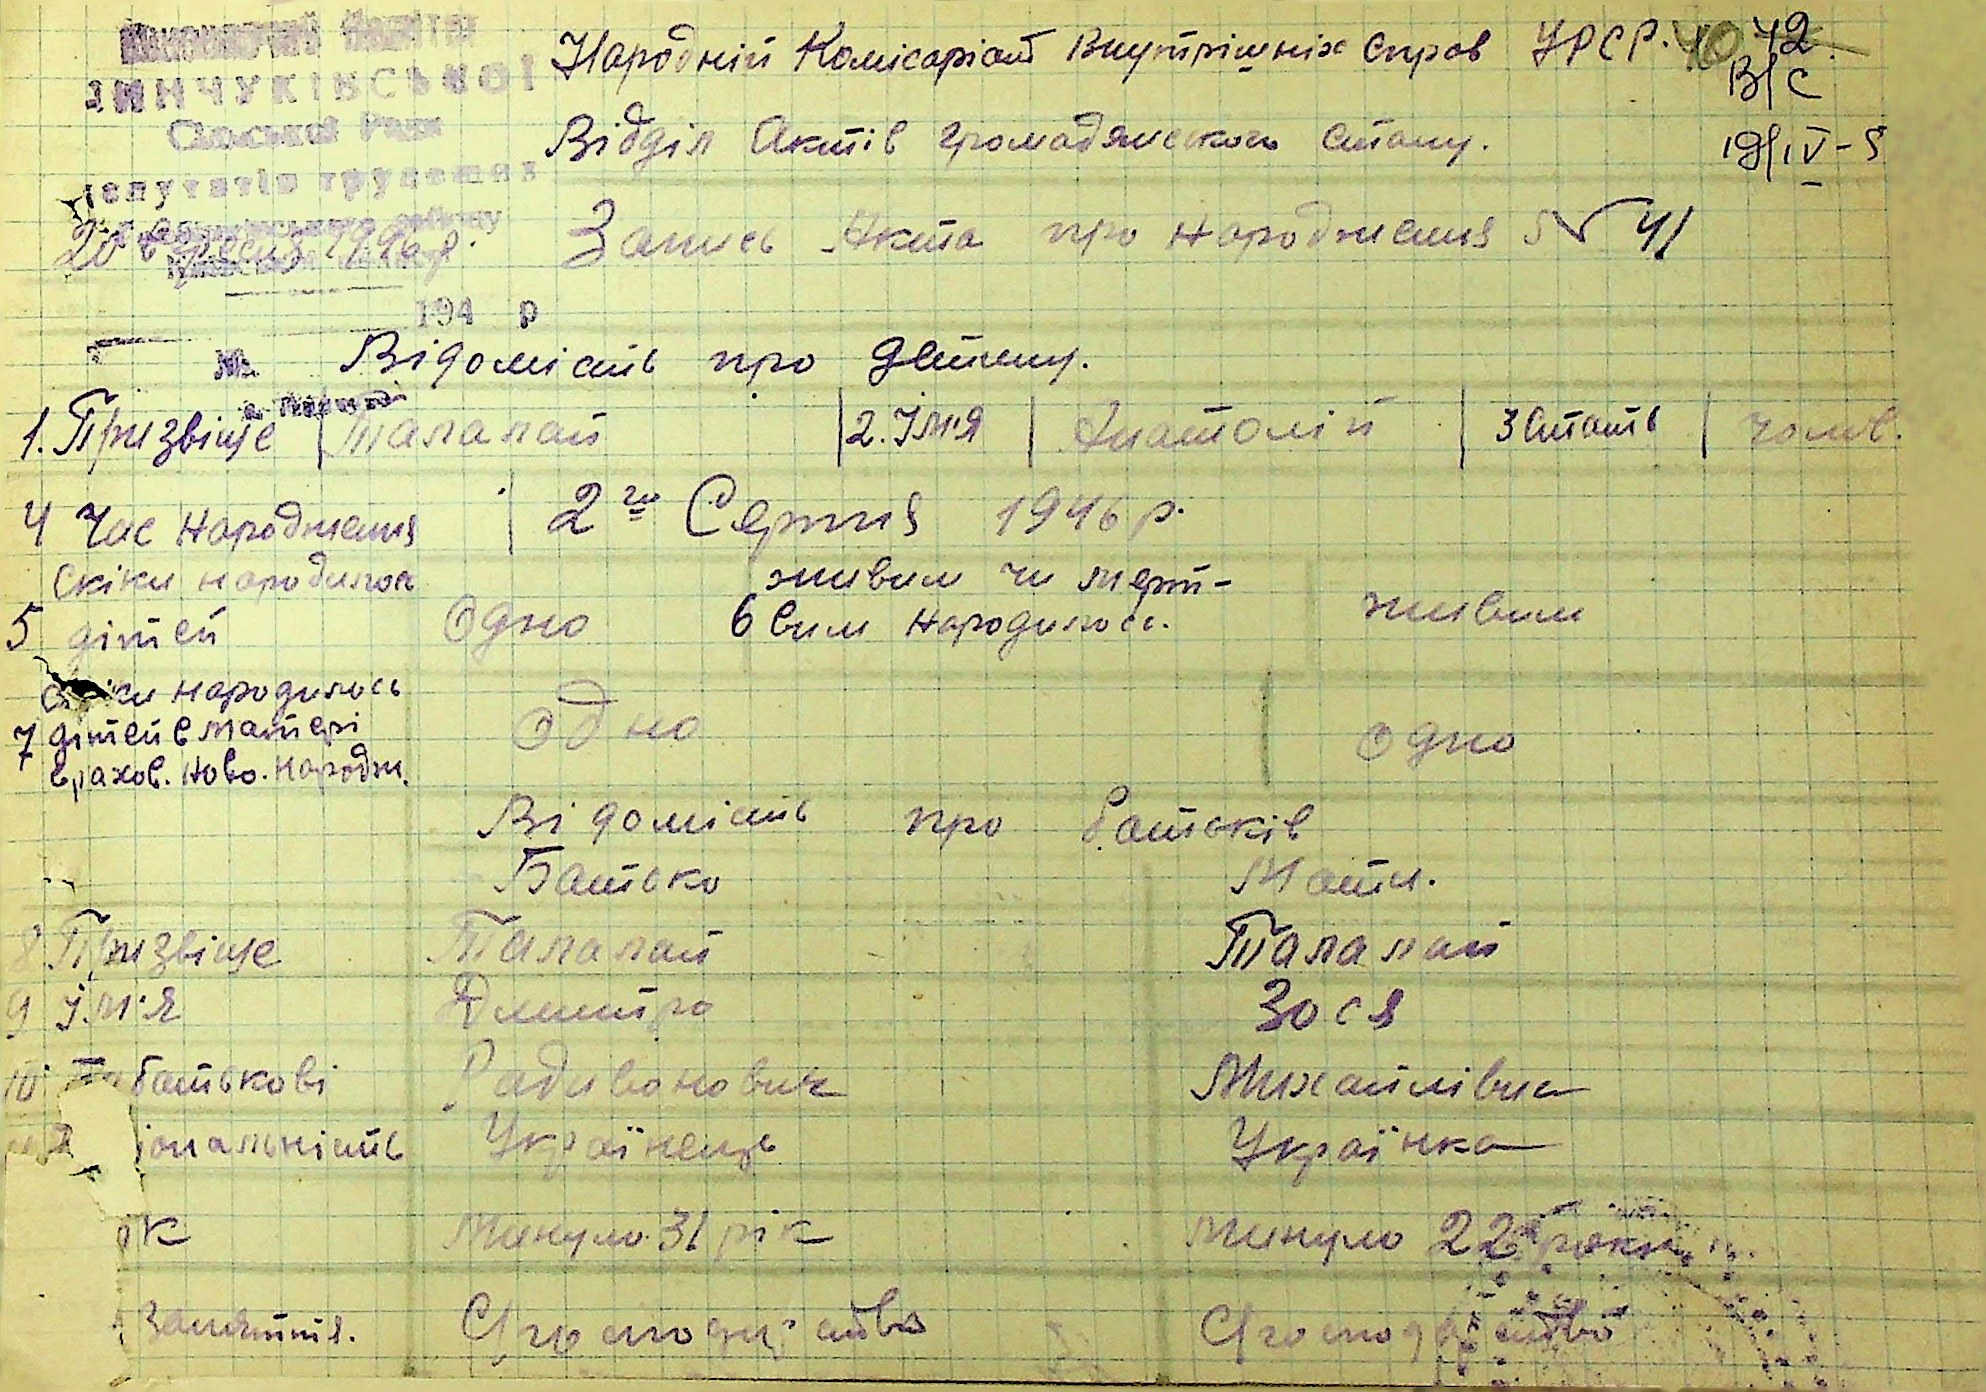 Виконавчий Комітет
ЗИНЧУКІВСЬКОЇ
Сільської Ради
депутатів трудящих
194 р
№
Народній Комісаріат Внутрішніх справ УРСР. 42
В/С
Відділ Актів громадянського стану.
20 1946 р.
Запись Акта про народження № 41
Відомість про дитину.
1. Призвіще | Талалай | 2. Імʼя | Анатолій | 3 Стать | чолов.
4 Час народження | 2го Серпня 1946 р.
Скіки народилося
5 дітей одно
живим чи мерт-
6 вим народилось. живим
Скіки народилось
7 дітей в матері
врахов. ново. народж.
одно одно
Відомість про батьків
Батько Мати.
8 Призвіще Талалай Талалай
9 Імʼя Дмитро Зося
10 По батькові Радивонович Михайлівна
іональність Українець Українка
ік Минуло 31 рік минуло 22 роки
Заняття.